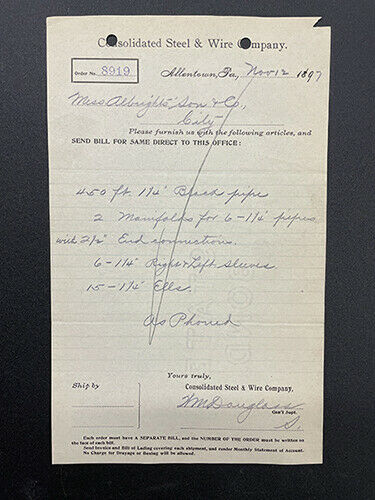 Consolidated Steel & Wire Company.
Order No. 8919
Allentown, Pa., Nov 12 1897
Miss Albrights' Son & Co,
City
Please furnish us with the following articles, and
SEND BILL FOR SAME DIRECT TO THIS OFFICE:
450 ft. 1 1/4" Black pipe
2 Manifolds for 6 - 1 1/4" pipes
with 2 1/2" End connection.
6 - 1 1/4" Right & Left Sleeves
15 - 1 1/4" Ells.
As Phoned
Yours truly,
Ship by
Consolidated Steel & Wire Company,
WM Douglass
Gen'l Supt.
S.
Each order must have A SEPARATE BILL, and the NUMBER OF THE ORDER must be written on
the face of each bill.
Send Invoice and Bill of Lading covering each shipment, and render Monthly Statement of Account.
No Charge for Drayage or Boxing will be allowed.